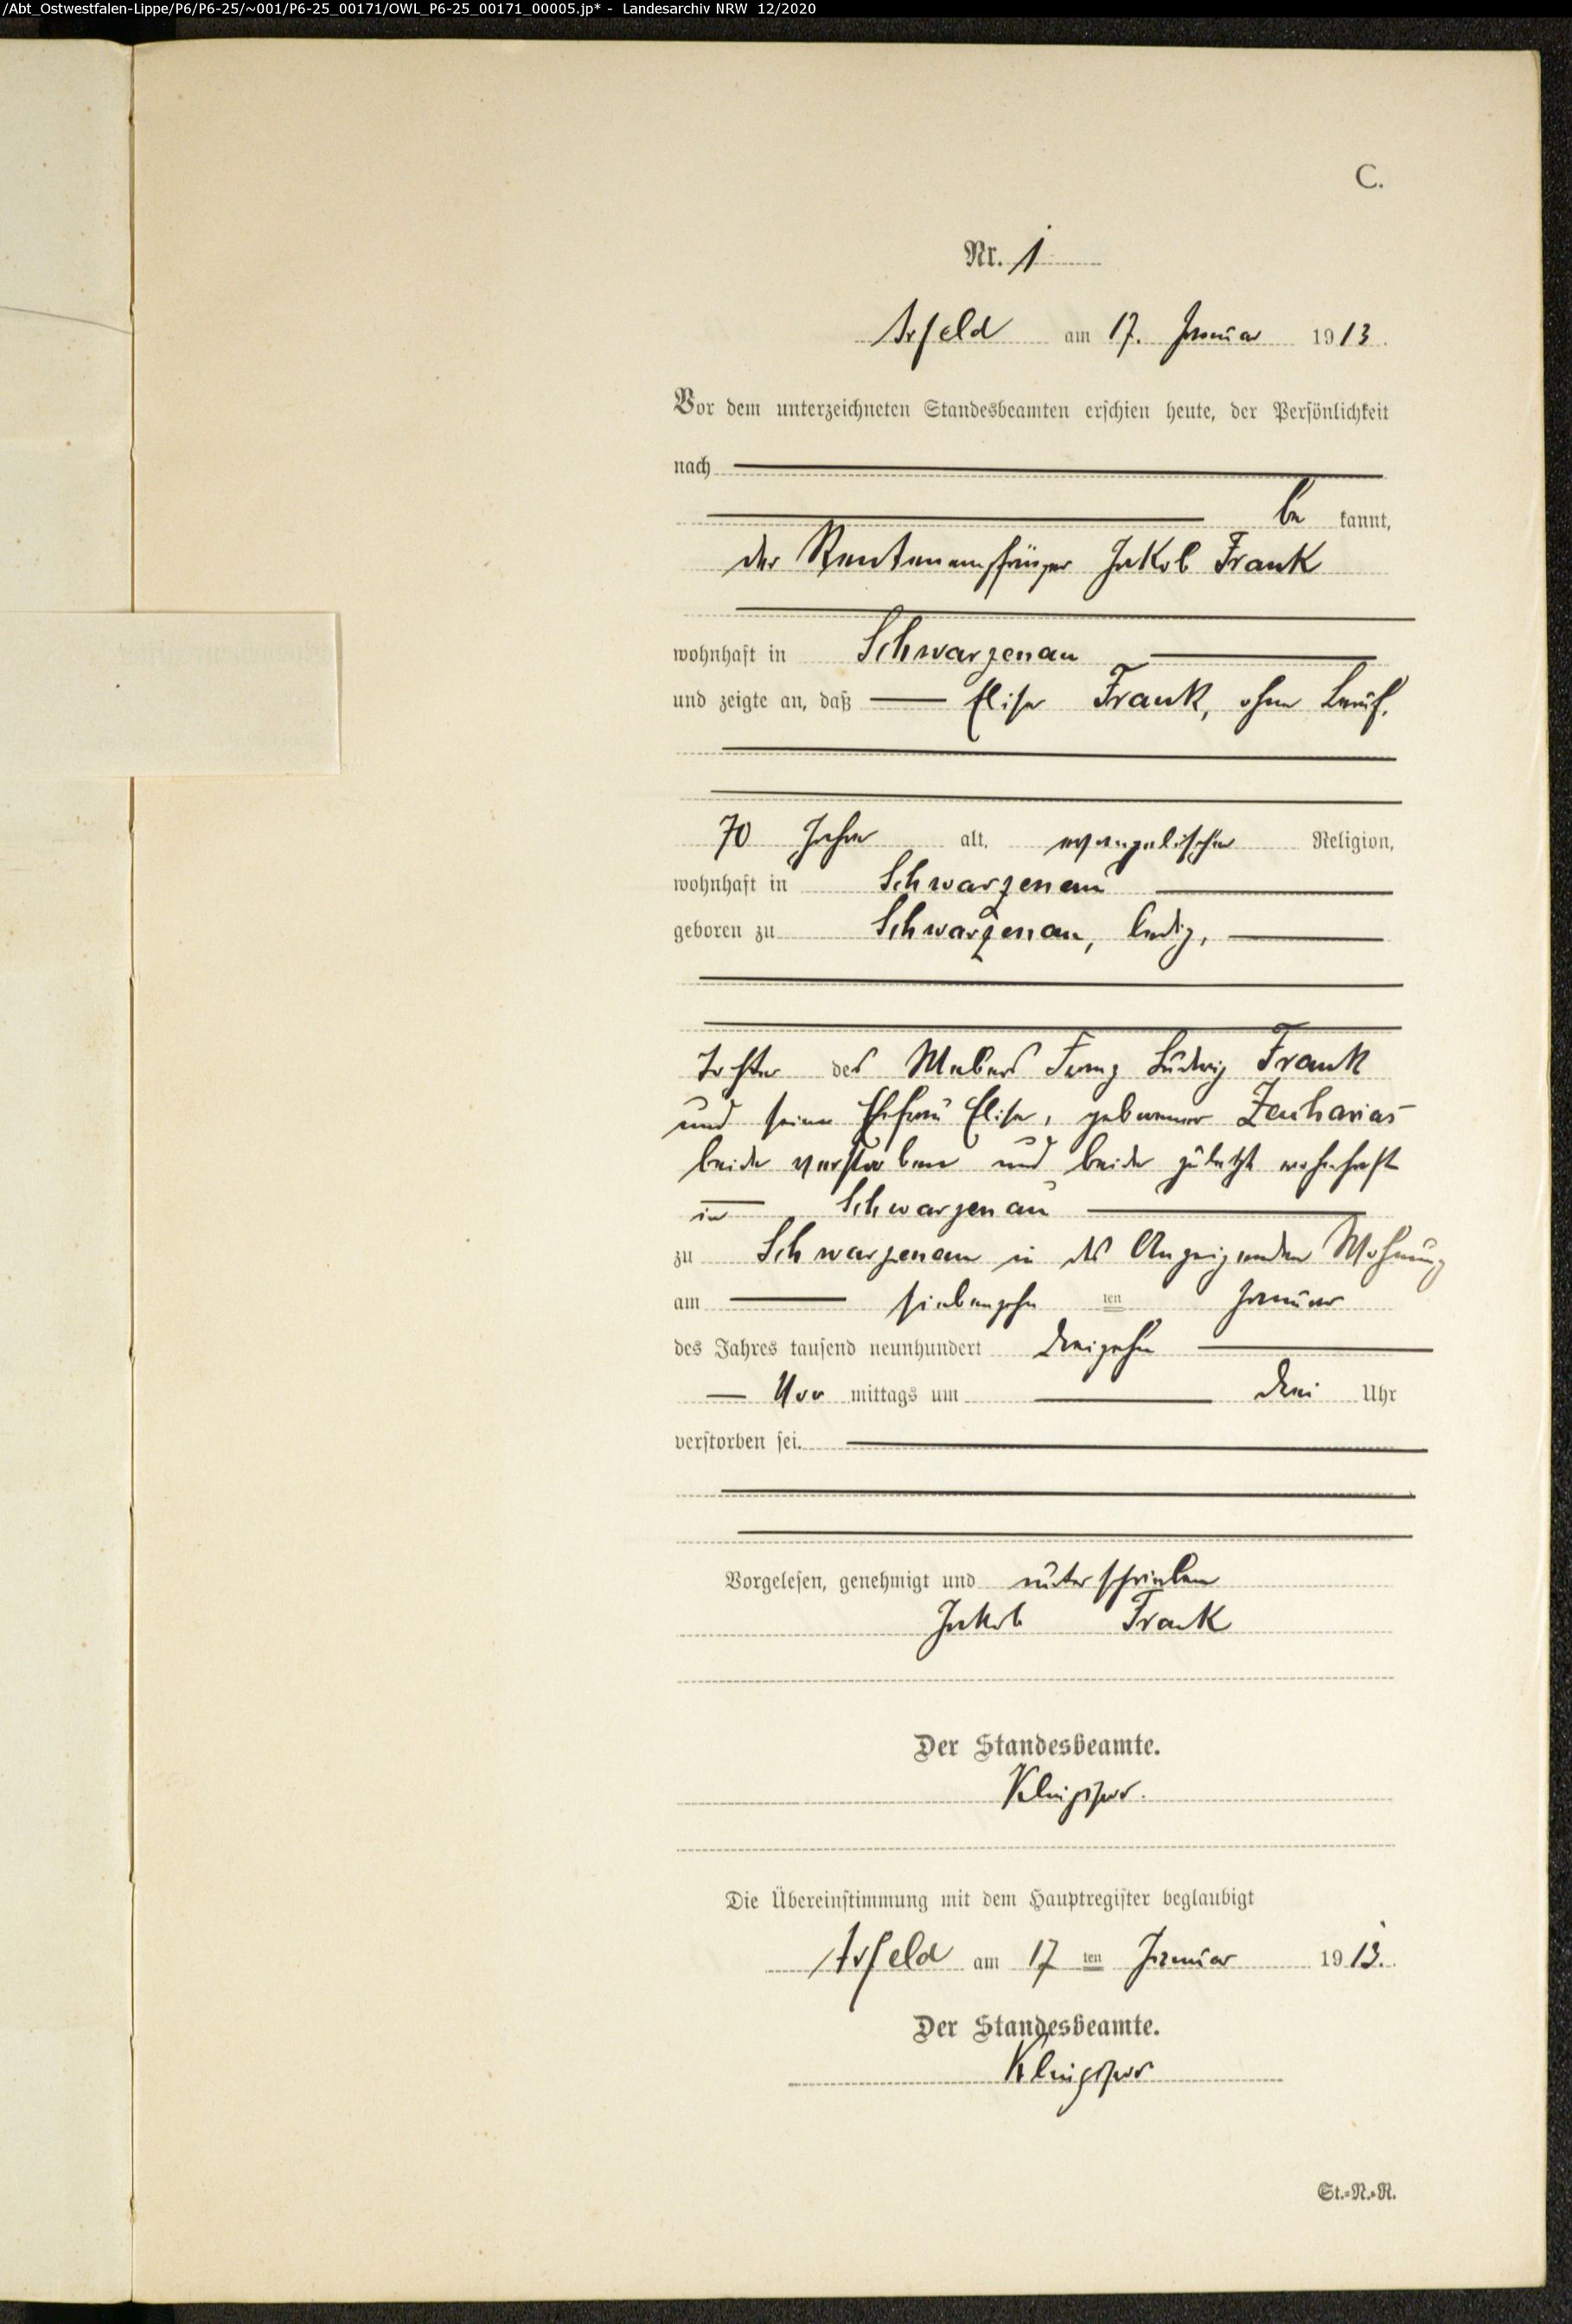 /Abt_Ostwestfalen-Lippe/P6/P6-25/~001/P6-25_00171/OWL_P6-25_00171_00005.jp* - Landesarchiv NRW 12/2020
C.
Nr. 1
Arfeld am 17. Januar 1913.
Vor dem unterzeichneten Standesbeamten erschien heute, der Persönlichkeit
nach
be kannt,
der Rentenempfänger Jakob Frank
wohnhaft in Schwarzenau
und zeigte an, daß Elise Frank, ohne Beruf,
70 Jahre alt, evangelischer Religion,
wohnhaft in Schwarzenau
geboren zu Schwarzenau, ledig,
Tochter des Webers Franz Ludwig Frank
und seiner Ehefrau Elise, geborener Zacharias
beide verstorben und beide zuletzt wohnhaft
in Schwarzenau
zu Schwarzenau in des Anzeigenden Wohnung
am siebenzehn ten Januar
des Jahres tausend neunhundert dreizehn
Vor mittags um drei Uhr
verstorben sei.
Vorgelesen, genehmigt und unterschrieben
Jakob Frank
Der Standesbeamte.
Klingspor.
Die Übereinstimmung mit dem Hauptregister beglaubigt
Arfeld am 17 ten Januar 1913.
Der Standesbeamte.
Klingspor
St.-N.-R.